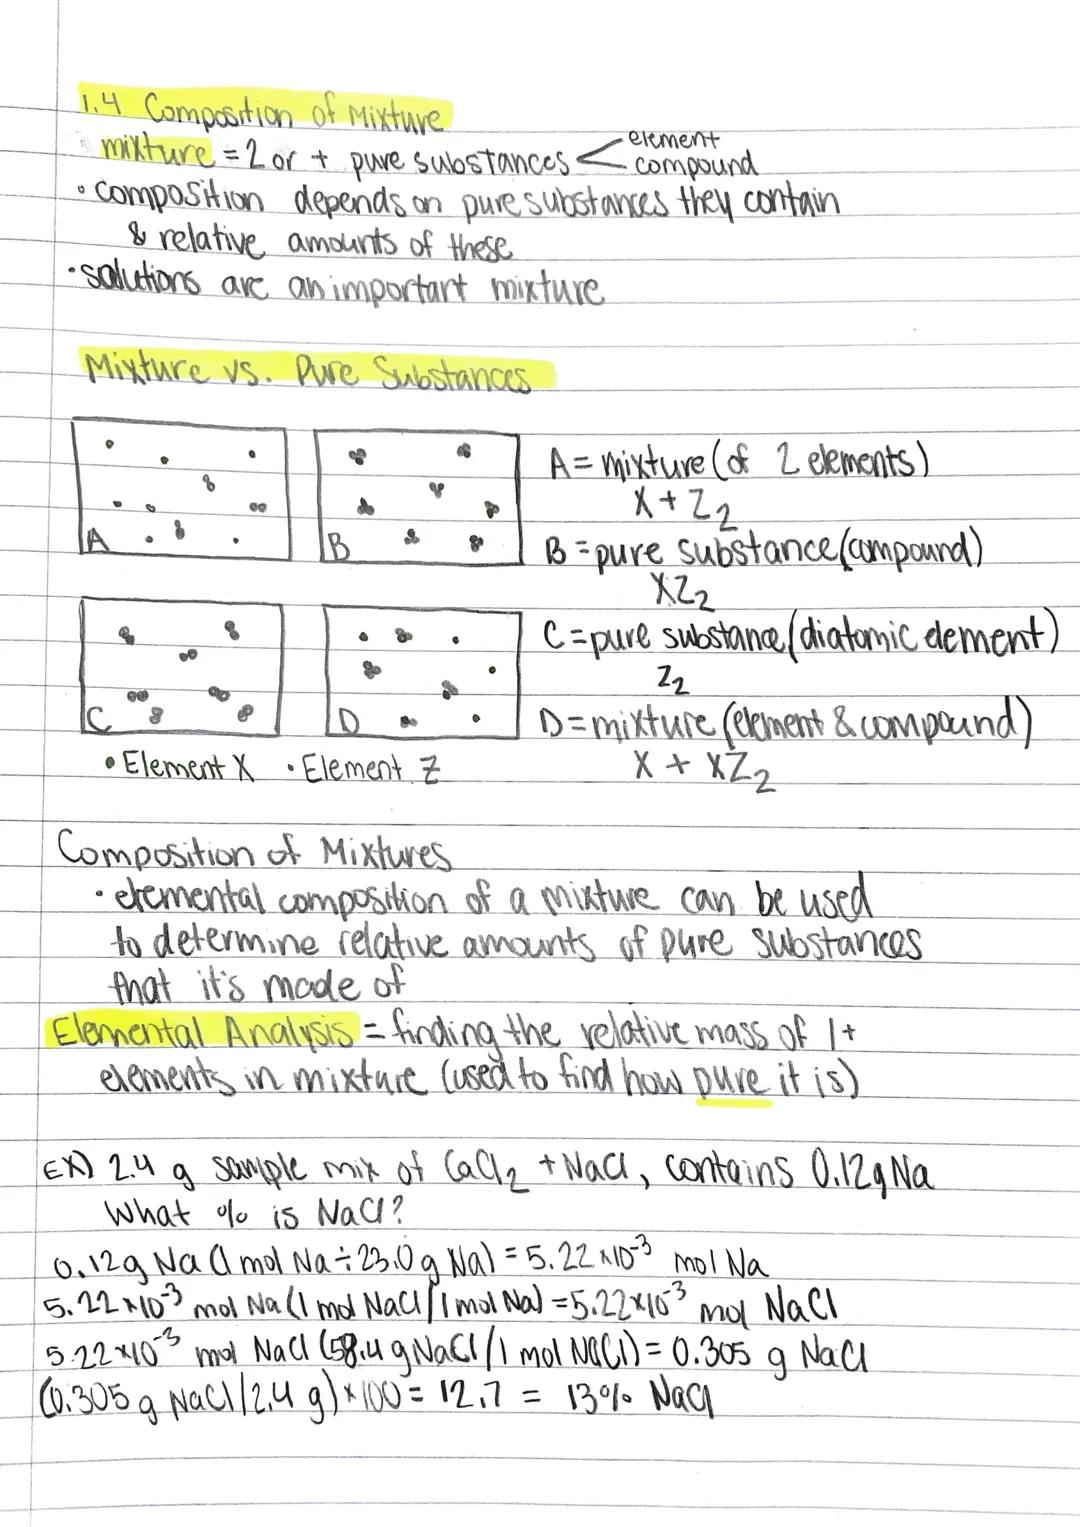 1.4 Composition of Mixture
mixture = 2 or + pure substances < element
compound
• composition depends on pure substances they contain
& relative amounts of these
• solutions are an important mixture
Mixture vs. Pure Substances
A
B
A = mixture (of 2 elements)
X + Z₂
B = pure substance (compound)
XZ₂
C
D
C = pure substance (diatomic element)
Z₂
D = mixture (element & compound)
X + XZ₂
• Element X • Element Z
Composition of Mixtures
• elemental composition of a mixture can be used
to determine relative amounts of pure substances
that it's made of
Elemental Analysis = finding the relative mass of 1+
elements in mixture (used to find how pure it is)
EX) 2.4 g sample mix of CaCl₂ + NaCl, contains 0.12g Na
What % is NaCl?
0.12g Na (1 mol Na ÷ 23.0 g Na) = 5.22 x10⁻³ mol Na
5.22 x10⁻³ mol Na (1 mol NaCl / 1 mol Na) = 5.22x10⁻³ mol NaCl
5.22 x10⁻³ mol NaCl (58.4 g NaCl / 1 mol NaCl) = 0.305 g NaCl
(0.305 g NaCl / 2.4 g) x 100 = 12.7 = 13% NaCl